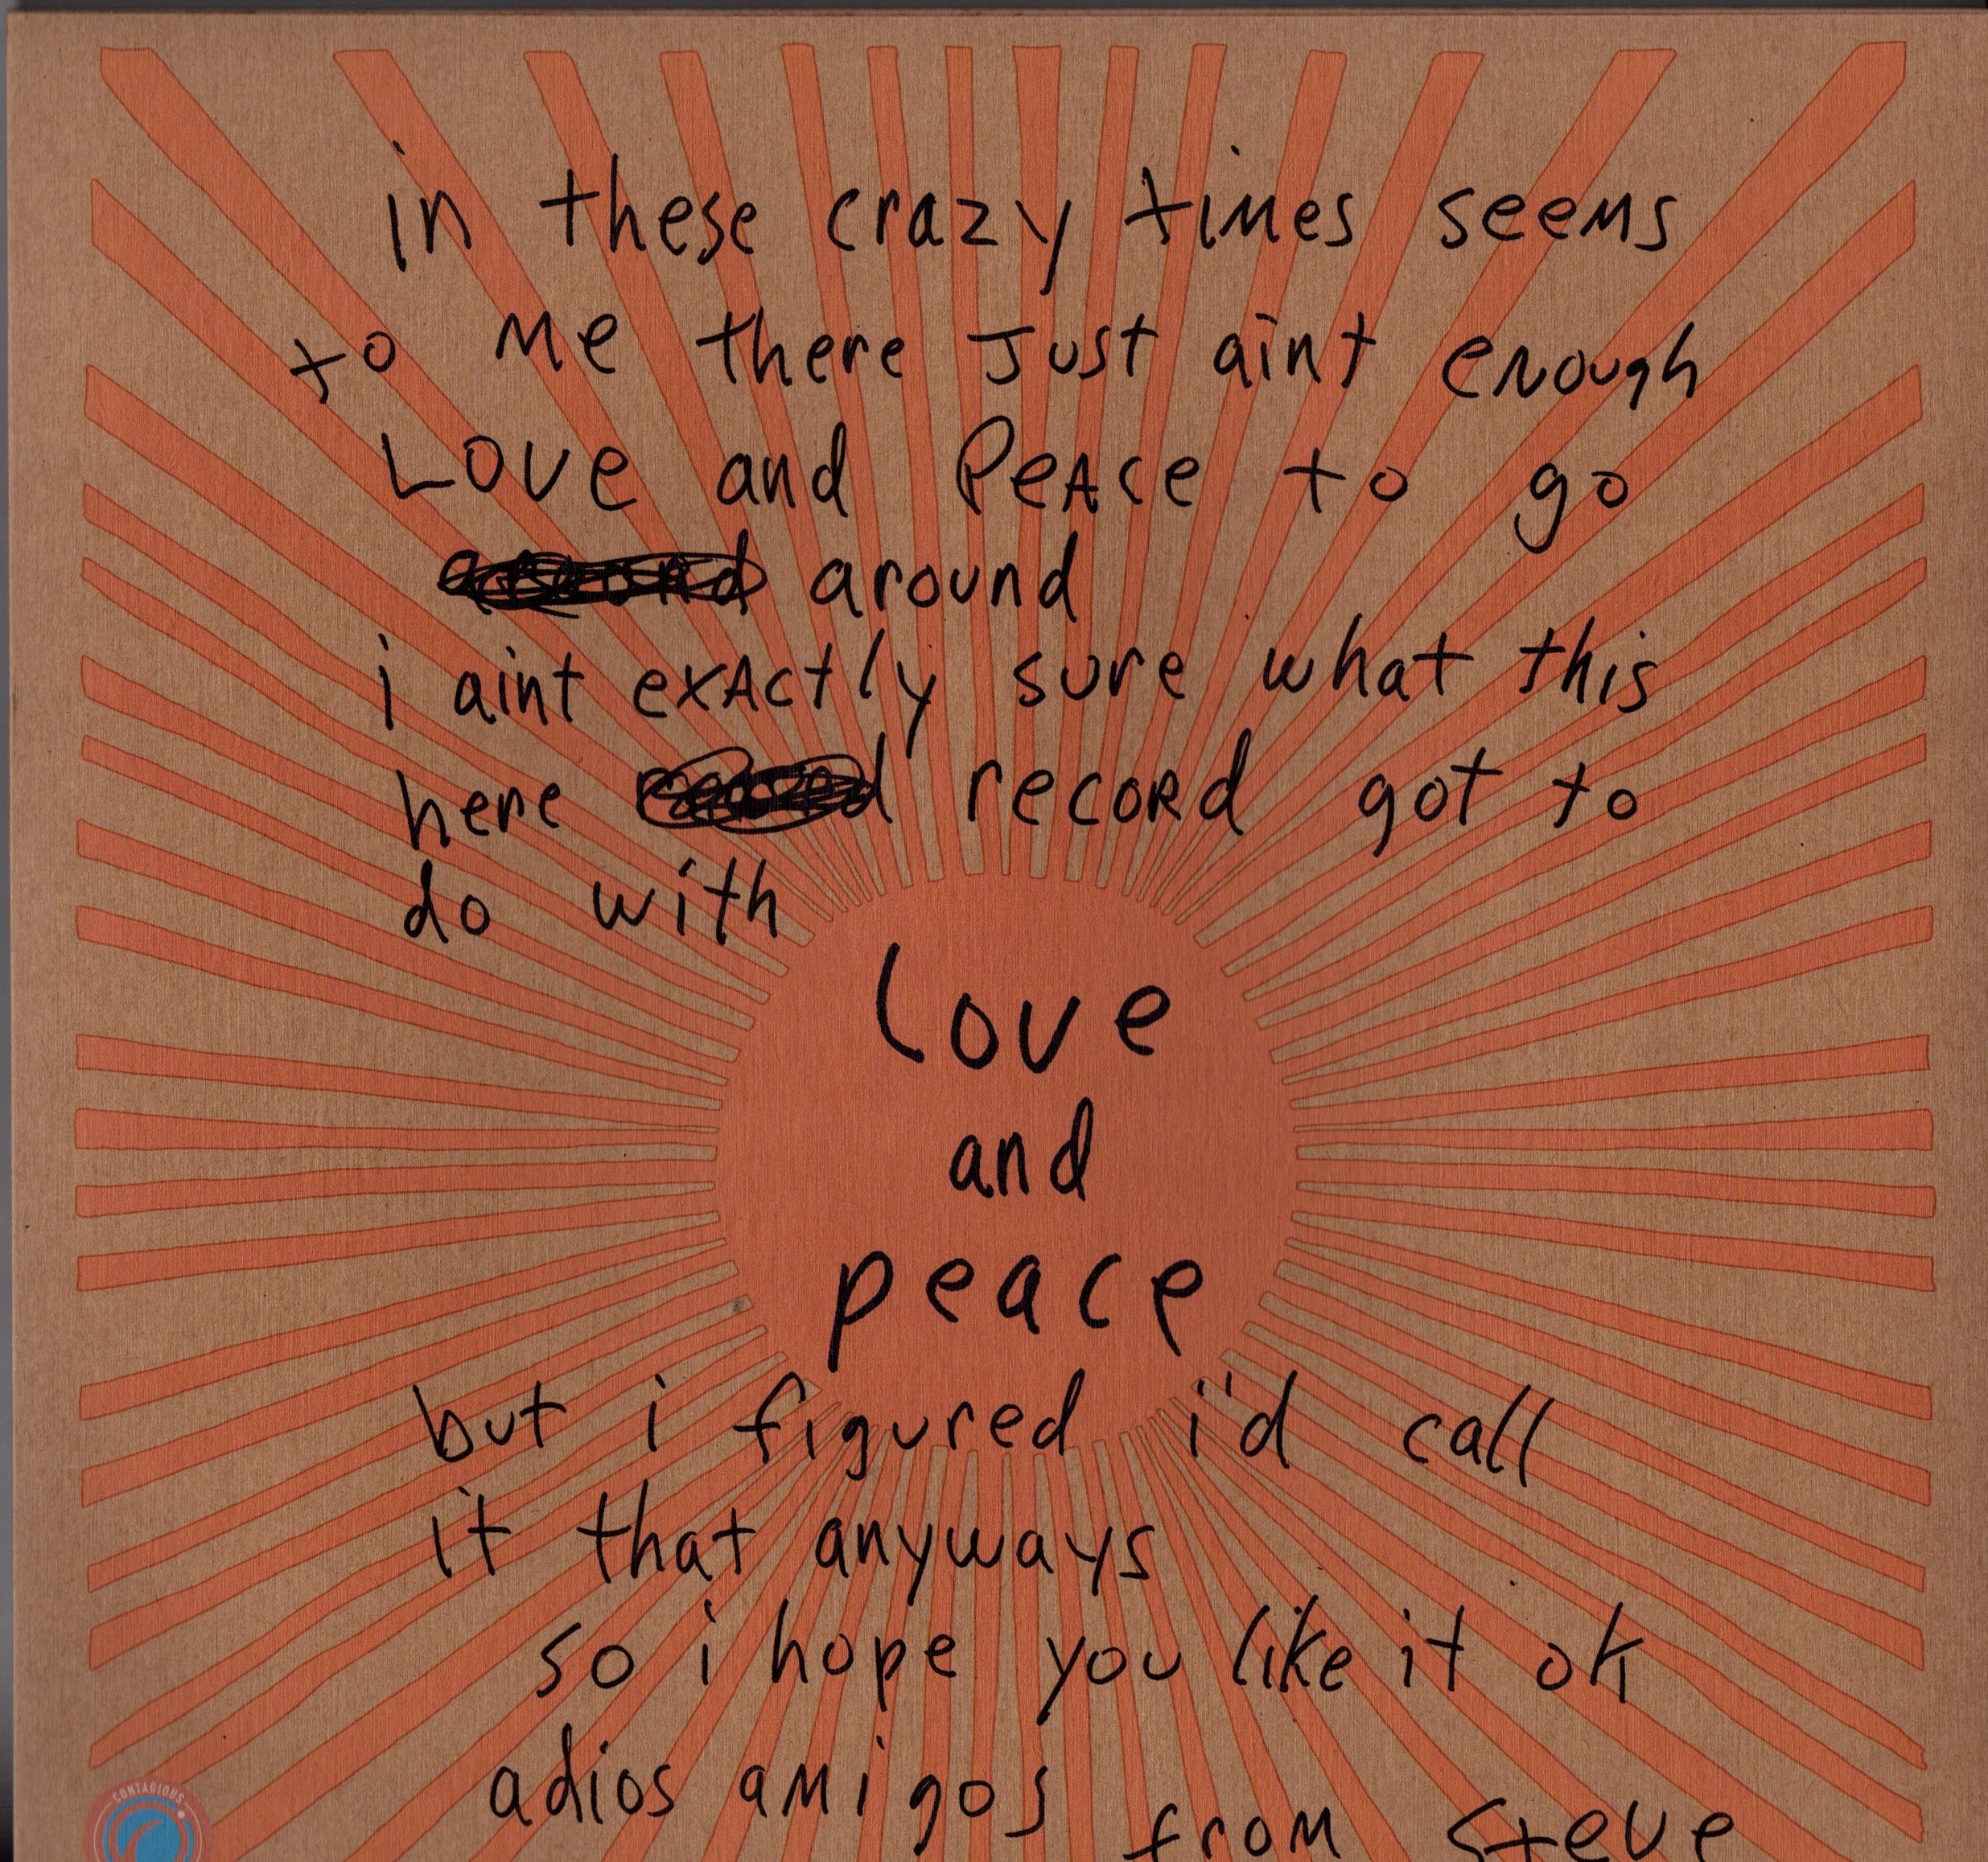 in these crazy times seems
to me there Just aint enough
LOVE and PeAce to go
around
i aint exActly sure what this
here recoRd got to
do with
Love
and
peace
but i figured i'd call
it that anyways
so i hope you like it ok
adios amigos
from Steve
CONTAGIOUS